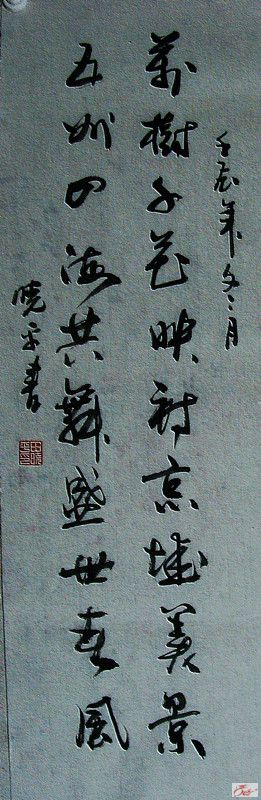 壬辰年冬月
萬樹千花映衬京城美景
五州四海共舞盛世春風
曉平書